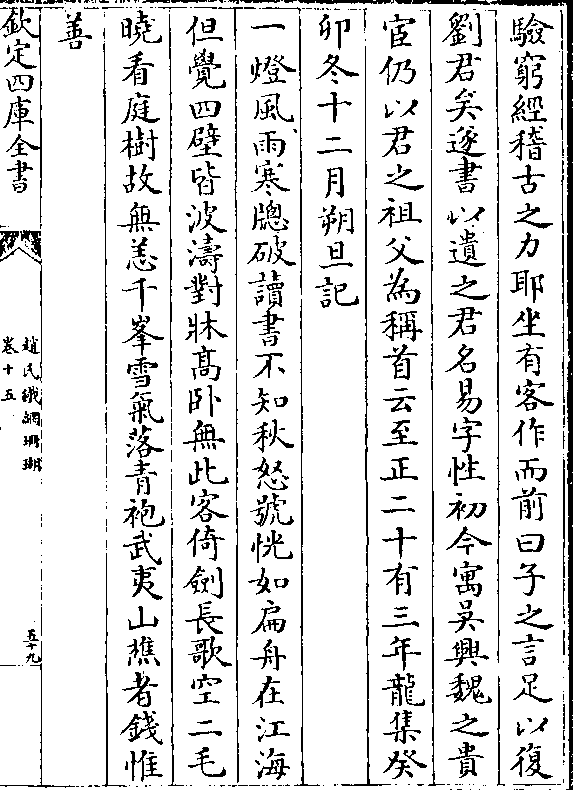 驗窮經稽古之力耶坐有客作而前曰子之言足以復
劉君矣遂書以遺之君名易字性初今寓吳興魏之貴
宦仍以君之祖父為稱首云至正二十有三年龍集癸
卯冬十二月朔旦記
一燈風雨寒牕破讀書不知秋怒號恍如扁舟在江海
但覺四壁皆波濤對牀髙卧無此客倚劍長歌空二毛
曉看庭樹故無恙千峯雪氣落青袍武夷山樵者錢惟
善
欽定四庫全書
趙氏鐵網珊瑚
卷十五
五十九